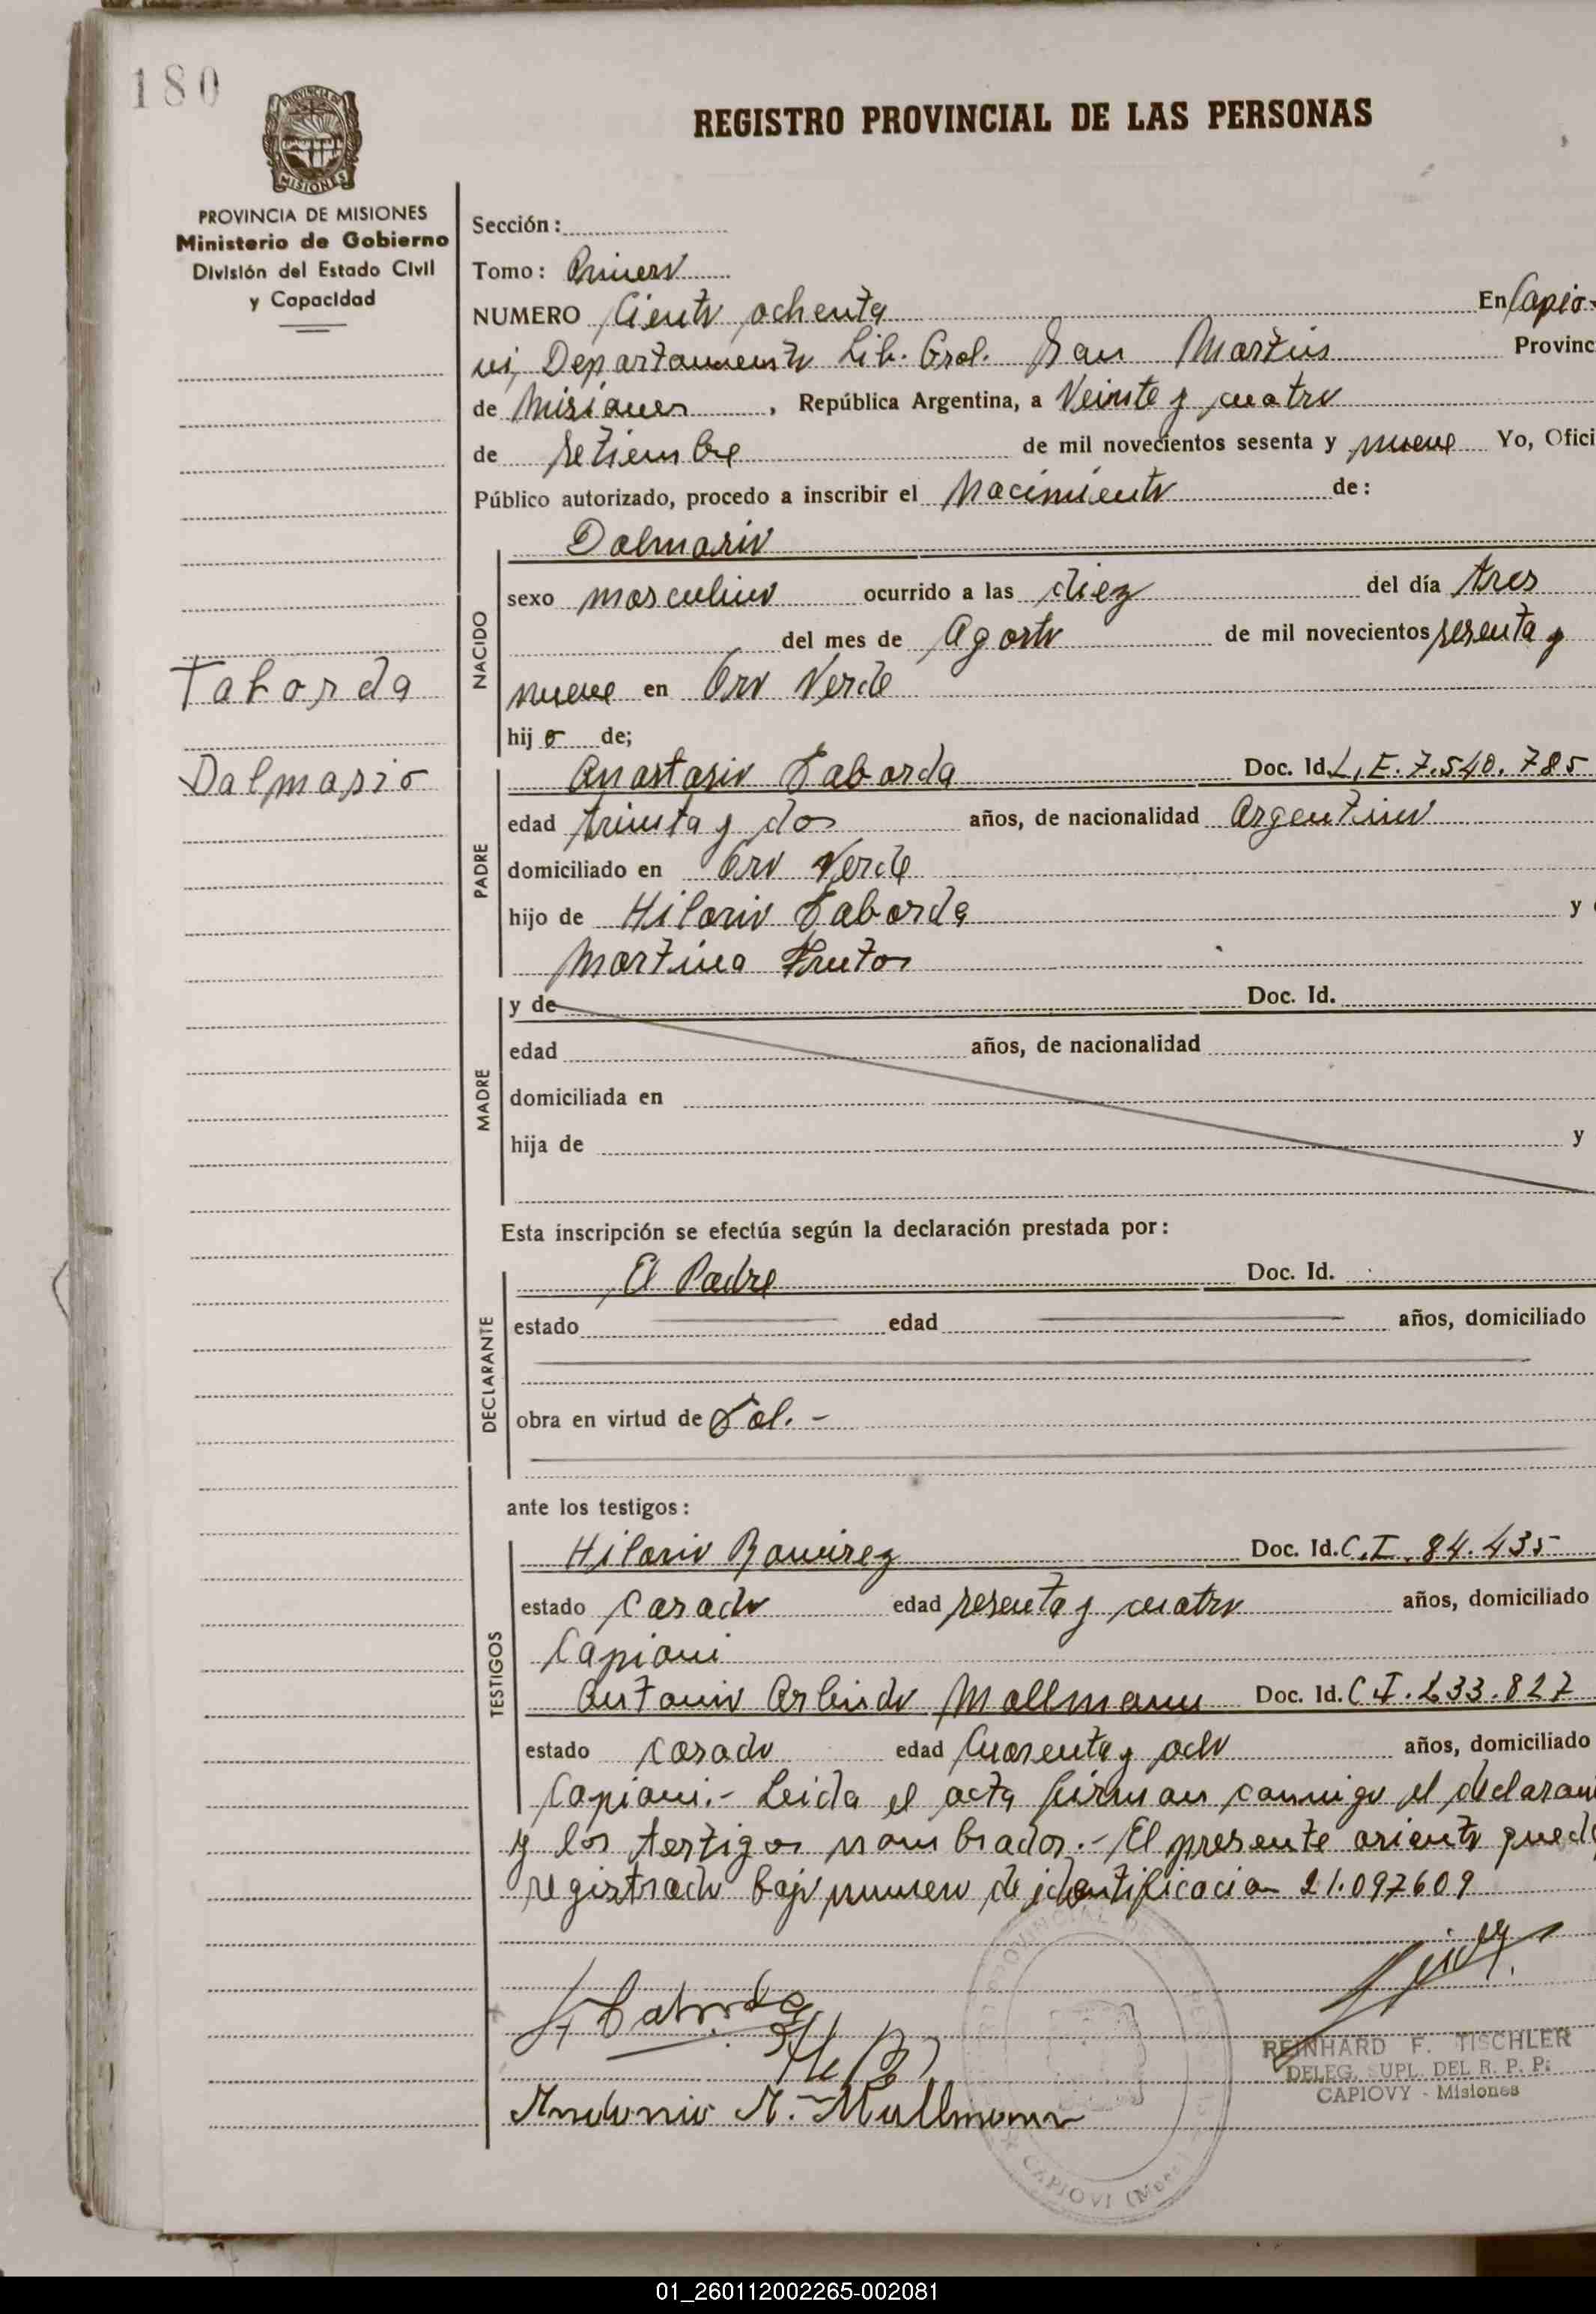 180
REGISTRO PROVINCIAL DE LAS PERSONAS
PROVINCIA DE MISIONES
Ministerio de Gobierno
División del Estado Civil
y Capacidad
Sección:
Tomo: Primero
NUMERO Ciento ochenta En Capio-
ví, Departamento Lib. Gral. San Martin Provinc
de Misiones, República Argentina, a Veinte y cuatro
de setiembre de mil novecientos sesenta y nueve Yo, Ofici
Público autorizado, procedo a inscribir el Nacimiento de:
Dalmasio
NACIDO
sexo masculino ocurrido a las diez del día tres
del mes de Agosto de mil novecientos sesenta y
nueve en Oro Verde
hijo de;
Taborda
Dalmasio
PADRE
Anastasio Taborda Doc. Id. L.E. 7.540.785
edad treinta y dos años, de nacionalidad Argentino
domiciliado en Oro Verde
hijo de Hilario Taborda y
Martina Frutos
MADRE
y de Doc. Id.
edad años, de nacionalidad
domiciliada en
hija de y
Esta inscripción se efectúa según la declaración prestada por:
DECLARANTE
El Padre Doc. Id.
estado edad años, domiciliado
obra en virtud de Tal. -
ante los testigos:
TESTIGOS
Hilario Ramirez Doc. Id. C.I. 84.435
estado Casado edad sesenta y cuatro años, domiciliado
Capiovi
Antonio Arlindo Mallmann Doc. Id. C.I. 233.827
estado casado edad Cuarenta y ocho años, domiciliado
Capiovi.- Leida el acta firman conmigo el declaran
y los testigos nombrados.- El presente asiento queda
registrado bajo numero de identificacion 21.097609
A Taborda
Antonio A. Mallmann
REINHARD F. TISCHLER
DELEG. SUPL. DEL R. P. P.
CAPIOVY - Misiones
CAPIOVI (Mnes)
01_260112002265-002081